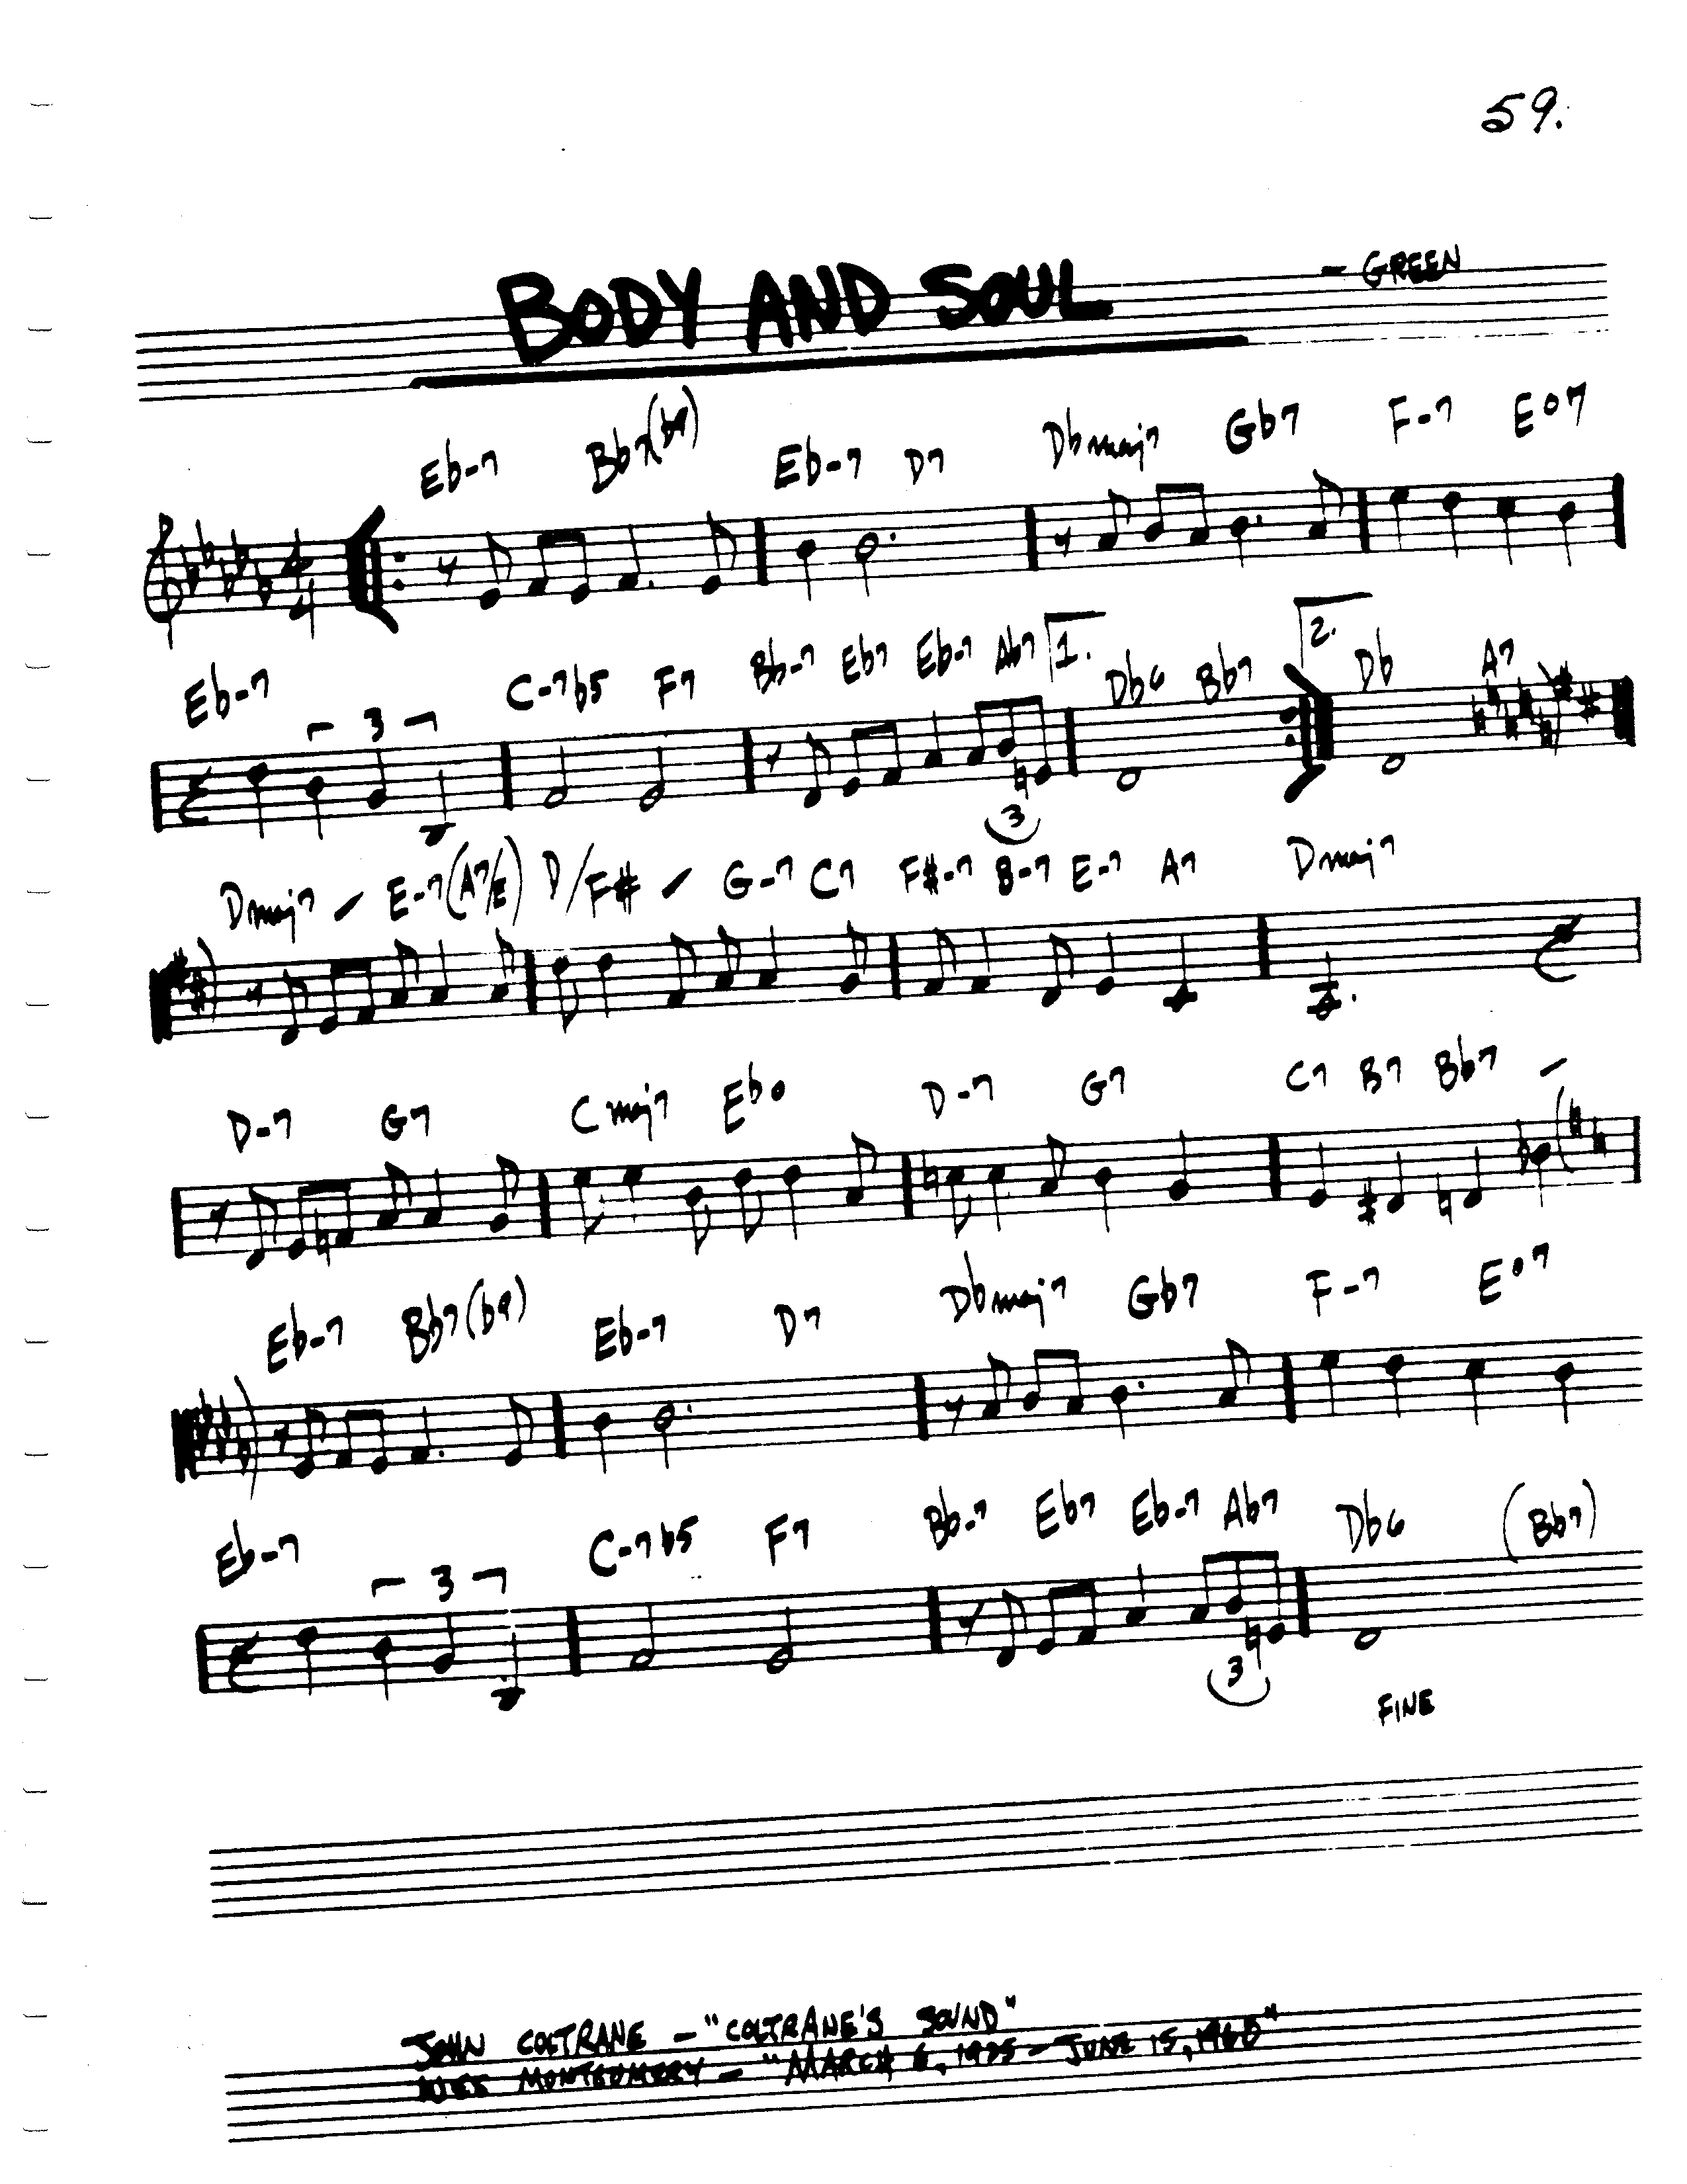 59.
BODY AND SOUL
- GREEN
Eb-7 Bb7(b9) Eb-7 D7 Dbmaj7 Gb7 F-7 Eo7
Eb-7 C-7b5 F7 Bb-7 Eb7 Eb-7 Ab7 1. Db6 Bb7 2. Db A7
3
3
Dmaj7 - E-7(A7/E) D/F# - G-7 C7 F#-7 B-7 E-7 A7 Dmaj7
D-7 G7 Cmaj7 Ebo D-7 G7 C7 B7 Bb7 -
Eb-7 Bb7(b9) Eb-7 D7 Dbmaj7 Gb7 F-7 Eo7
Eb-7 C-7b5 F7 Bb-7 Eb7 Eb-7 Ab7 Db6 (Bb7)
3
3
FINE
JOHN COLTRANE - "COLTRANE'S SOUND"
WES MONTGOMERY - "MARCH 6, 1925 - JUNE 15, 1968"